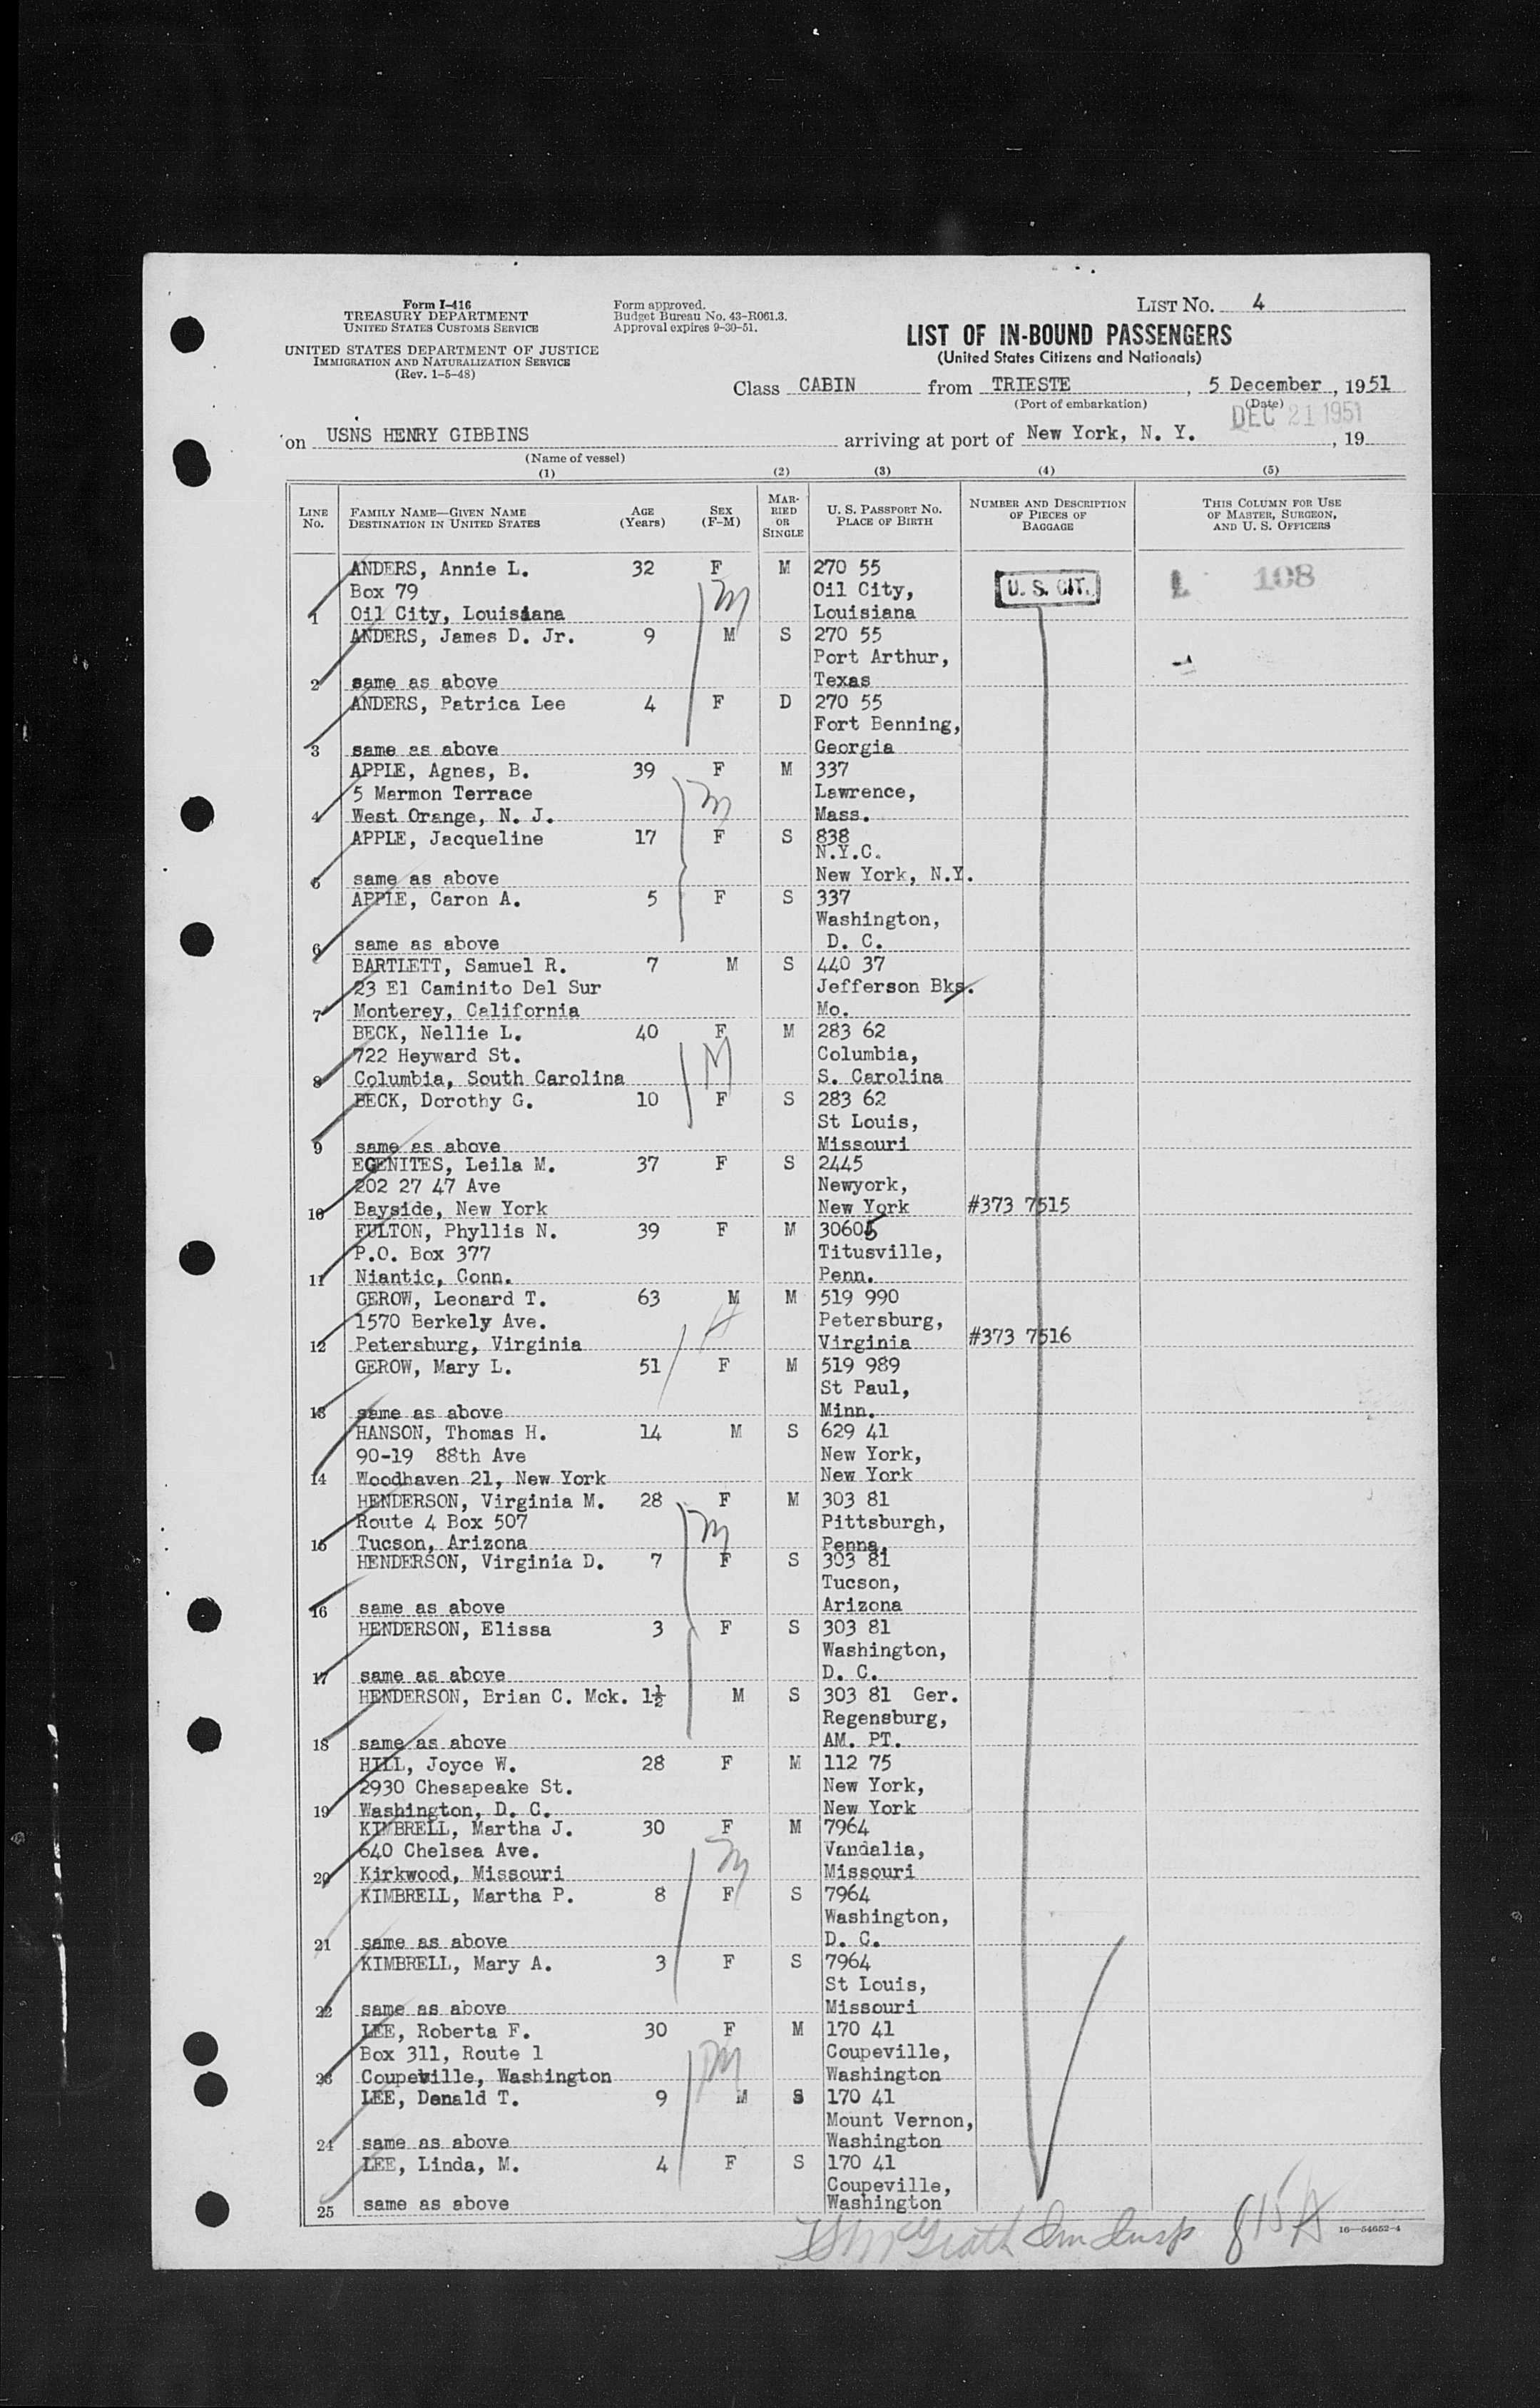 Form I-416
TREASURY DEPARTMENT
UNITED STATES CUSTOMS SERVICE
UNITED STATES DEPARTMENT OF JUSTICE
IMMIGRATION AND NATURALIZATION SERVICE
(Rev. 1-5-48)
Form approved.
Budget Bureau No. 43-R061.3.
Approval expires 9-30-51.
LIST NO. 4
LIST OF IN-BOUND PASSENGERS
(United States Citizens and Nationals)
Class CABIN from TRIESTE, 5 December, 1951
(Port of embarkation) (Date)
DEC 21 1951
on USNS HENRY GIBBINS arriving at port of New York, N. Y. , 19
(Name of vessel)
(1) (2) (3) (4) (5)
LINE NO. FAMILY NAME—GIVEN NAME DESTINATION IN UNITED STATES AGE (Years) SEX (F-M) MARRIED OR SINGLE U. S. PASSPORT NO. PLACE OF BIRTH NUMBER AND DESCRIPTION OF PIECES OF BAGGAGE THIS COLUMN FOR USE OF MASTER, SURGEON, AND U. S. OFFICERS
ANDERS, Annie L. 32 F M 270 55
Box 79 Oil City, U. S. CIT. L 108
1 Oil City, Louisiana Louisiana
ANDERS, James D. Jr. 9 M S 270 55
Port Arthur,
2 same as above Texas
ANDERS, Patrica Lee 4 F D 270 55
Fort Benning,
3 same as above Georgia
APPLE, Agnes, B. 39 F M 337
5 Marmon Terrace Lawrence,
4 West Orange, N. J. Mass.
APPLE, Jacqueline 17 F S 838
N.Y.C.
5 same as above New York, N.Y.
APPLE, Caron A. 5 F S 337
Washington,
6 same as above D. C.
BARTLETT, Samuel R. 7 M S 440 37
23 El Caminito Del Sur Jefferson Bks.
7 Monterey, California Mo.
BECK, Nellie L. 40 F M 283 62
722 Heyward St. Columbia,
8 Columbia, South Carolina S. Carolina
BECK, Dorothy G. 10 F S 283 62
St Louis,
9 same as above Missouri
EGENITES, Leila M. 37 F S 2445
202 27 47 Ave Newyork,
10 Bayside, New York New York #373 7515
FULTON, Phyllis N. 39 F M 30605
P.O. Box 377 Titusville,
11 Niantic, Conn. Penn.
GEROW, Leonard T. 63 M M 519 990
1570 Berkely Ave. Petersburg,
12 Petersburg, Virginia Virginia #373 7516
GEROW, Mary L. 51 F M 519 989
St Paul,
13 same as above Minn.
HANSON, Thomas H. 14 M S 629 41
90-19 88th Ave New York,
14 Woodhaven 21, New York New York
HENDERSON, Virginia M. 28 F M 303 81
Route 4 Box 507 Pittsburgh,
15 Tucson, Arizona Penna.
HENDERSON, Virginia D. 7 F S 303 81
Tucson,
16 same as above Arizona
HENDERSON, Elissa 3 F S 303 81
Washington,
17 same as above D. C.
HENDERSON, Brian C. Mck. 1½ M S 303 81 Ger.
Regensburg,
18 same as above AM. PT.
HILL, Joyce W. 28 F M 112 75
2930 Chesapeake St. New York,
19 Washington, D. C. New York
KIMBRELL, Martha J. 30 F M 7964
640 Chelsea Ave. Vandalia,
20 Kirkwood, Missouri Missouri
KIMBRELL, Martha P. 8 F S 7964
Washington,
21 same as above D. C.
KIMBRELL, Mary A. 3 F S 7964
St Louis,
22 same as above Missouri
LEE, Roberta F. 30 F M 170 41
Box 311, Route 1 Coupeville,
23 Coupeville, Washington Washington
LEE, Donald T. 9 M S 170 41
Mount Vernon,
24 same as above Washington
LEE, Linda, M. 4 F S 170 41
Coupeville,
25 same as above Washington
McGrath Im Insp
16—54652-4